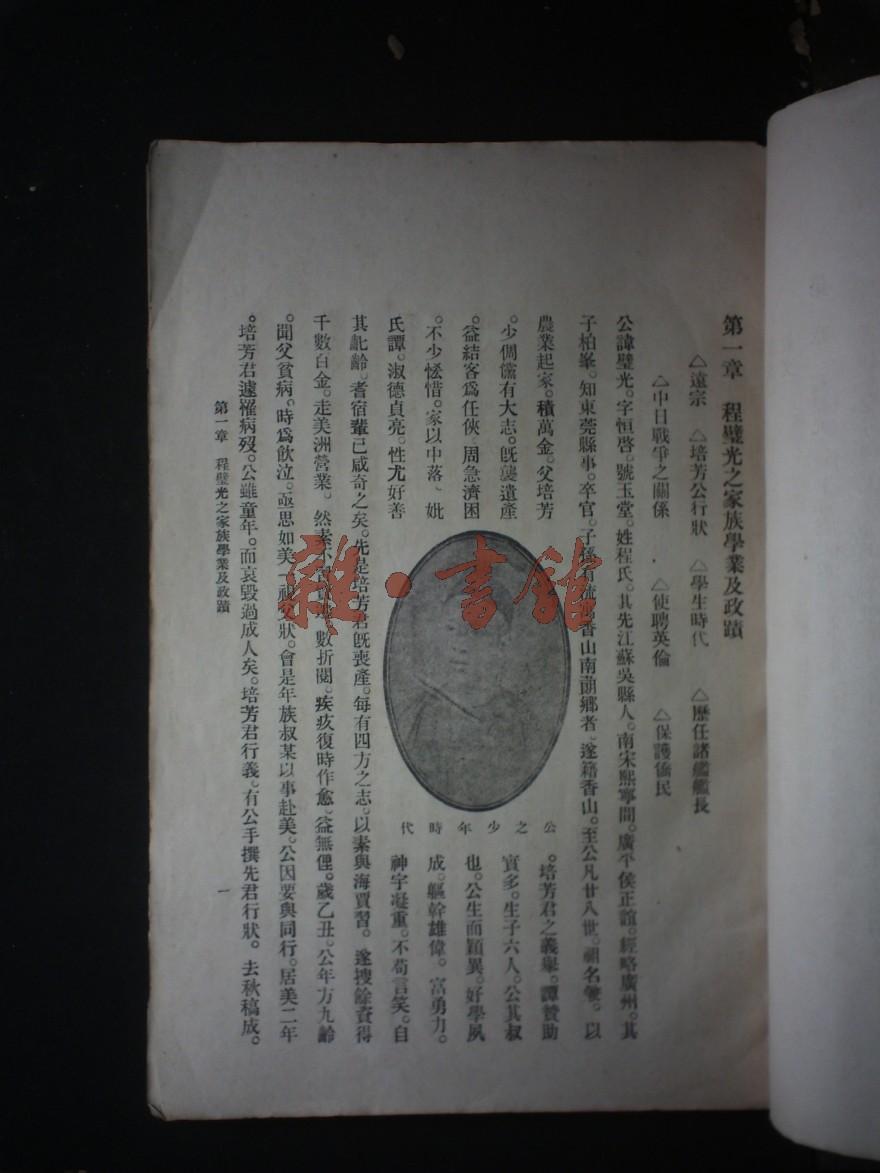 第一章　程璧光之家族學業及政蹟
△遠宗　△培芳公行狀　△學生時代　△歷任諸艦艦長
△中日戰爭之關係　△使聘英倫　△保護僑民
公諱璧光。字恒啓。號玉堂。姓程氏。其先江蘇吳縣人。南宋熙寧間。廣平侯正誼。經略廣州。其
子柏峯。知東莞縣事。卒官。子孫有 香山南蓢鄉者、遂籍香山。至公凡廿八世。祖名 。以
農業起家。積萬金。父培芳
。少倜儻有大志。旣襲遺產
。益結客爲任俠、周急濟困
。不少恡惜。家以中落、妣
氏譚。淑德貞亮。性尤好善
公之少年時代
。培芳君之義舉。譚贊助
實多。生子六人。公其叔
也。公生而穎異。好學夙
成。軀幹雄偉。富勇力。
神宇凝重。不苟言笑。自
其齓齡。耆宿輩已咸奇之矣。先是培芳君旣喪產。每有四方之志。以素與海賈習。遂搜餘資得
千數百金。走美洲營業。然素不 數折閱。疾疚復時作愈。益無俚。歲乙丑。公年方九齡
。聞父貧病。時爲飲泣。亟思如美一視父狀。會是年族叔某以事赴美。公因要與同行。居美二年
。培芳君遽罹病歿。公雖童年。而哀毀過成人矣。培芳君行義。有公手撰先君行狀。去秋稿成。
第一章　程璧光之家族學業及政蹟
一
雜·書館